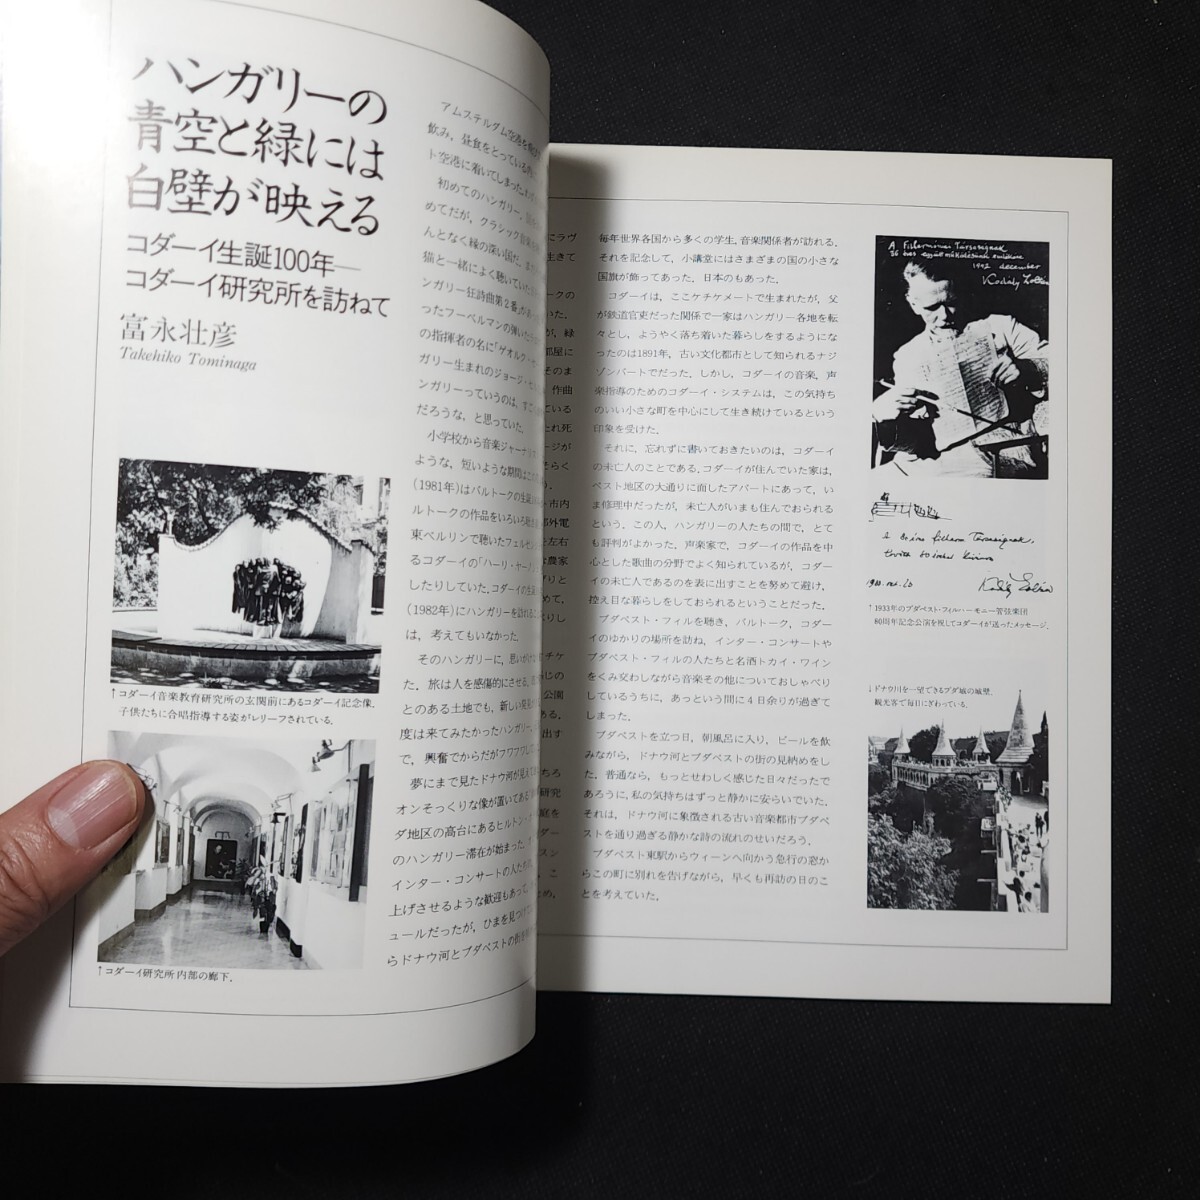 ハンガリーの
青空と緑には
白壁が映える
コダーイ生誕100年―
コダーイ研究所を訪ねて
富永壮彦
Takehiko Tominaga
↑コダーイ音楽教育研究所の玄関前にあるコダーイ記念像.
子供たちに合唱指導する姿がレリーフされている.
↑コダーイ研究所内部の廊下.
アムステルダム空港を
飲み，昼食をとっている
ト空港に着いてしまった.
初めてのハンガリー.
めてだが，クラシック音楽
んとなく縁の深い国だ.
猫と一緒によく聴いていた
ンガリー狂詩曲第2番」が
ったフーベルマンの弾いた
の指揮者の名に「ゲオルク・
ガリー生まれのジョージ・
ンガリーっていうのは，すご
だろうな，と思っていた.
小学校から音楽ジャーナ
ような，短いような期間は
(1981年)はバルトークの生誕
ルトークの作品をいろいろ
東ベルリンで聴いたフェルゼン
るコダーイの「ハーリ・ヤーノ
したりしていた.コダーイの生誕
(1982年)にハンガリーを訪れる
は，考えてもいなかった.
そのハンガリーに，思いが
た．旅は人を感傷的にさせる.
とのある土地でも，新しい発見
度は来てみたかったハンガリー
で，興奮でからだがフワフワし
夢にまで見たドナウ河が見え
オンそっくりな像が置いてある
ダ地区の高台にあるヒルトン・
のハンガリー滞在が始まった.
インター・コンサートの人たち
上げさせるような歓迎もあって，
ュールだったが，ひまを見つけ
らドナウ河とブダペストの街を
毎年世界各国から多くの学生，音楽関係者が訪れる.
それを記念して，小講堂にはさまざまの国の小さな
国旗が飾ってあった．日本のもあった.
コダーイは，ここケチケメートで生まれたが，父
が鉄道官吏だった関係で一家はハンガリー各地を転
々とし，ようやく落ち着いた暮らしをするようにな
ったのは1891年，古い文化都市として知られるナジ
ゾンバートでだった．しかし，コダーイの音楽，声
楽指導のためのコダーイ・システムは，この気持ち
のいい小さな町を中心にして生き続けているという
印象を受けた.
それに，忘れずに書いておきたいのは，コダーイ
の未亡人のことである.コダーイが住んでいた家は，
ペスト地区の大通りに面したアパートにあって，い
ま修理中だったが，未亡人がいまも住んでおられる
という．この人，ハンガリーの人たちの間で，とて
も評判がよかった．声楽家で，コダーイの作品を中
心とした歌曲の分野でよく知られているが，コダー
イの未亡人であるのを表に出すことを努めて避け，
控え目な暮らしをしておられるということだった.
ブダペスト・フィルを聴き，バルトーク，コダー
イのゆかりの場所を訪ね，インター・コンサートや
ブダペスト・フィルの人たちと名酒トカイ・ワイン
をくみ交わしながら音楽その他についておしゃべり
しているうちに，あっという間に4日余りが過ぎて
しまった.
ブダペストを立つ日，朝風呂に入り，ビールを飲
みながら，ドナウ河とブダペストの街の見納めをし
た．普通なら，もっとせわしく感じた日々だったで
あろうに，私の気持ちはずっと静かに安らいでいた.
それは，ドナウ河に象徴される古い音楽都市ブダペ
ストを通り過ぎる静かな詩の流れのせいだろう.
ブダペスト東駅からウィーンへ向かう急行の窓か
らこの町に別れを告げながら，早くも再訪の日のこ
とを考えていた.
1942 december
Kodály Zoltán
1933. oct. 20
Kodály Zoltán
↑1933年のブダペスト・フィルハーモニー管弦楽団
80周年記念公演を祝してコダーイが送ったメッセージ.
↓ドナウ川を一望できるブダ城の城壁.
観光客で毎日にぎわっている.